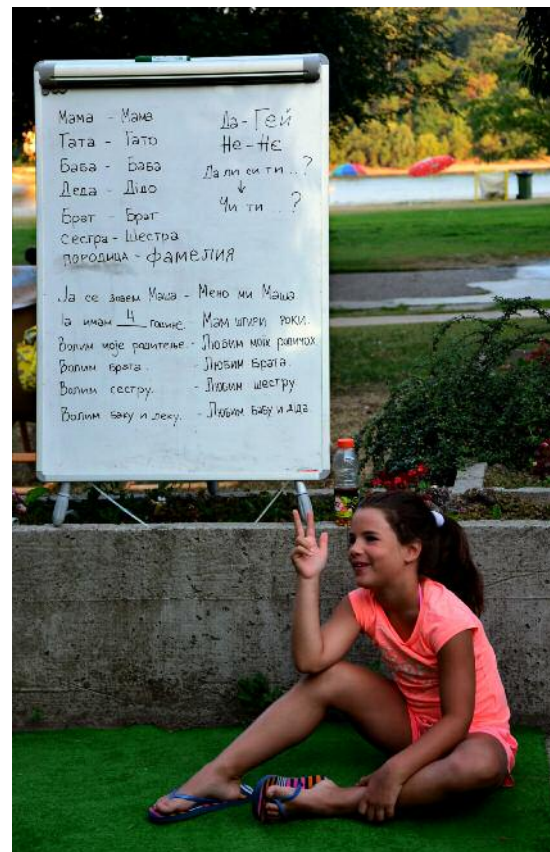 Мама - Мама
Тата - Тато
Баба - Баба
Деда - Дїдо
Брат - Брат
сестра - Шестра
породица - фамелия
Да - Гей
Не - Нє
Да ли си ти ...?
↓
Чи ти ...?
Ја се зовем Маша - Мено ми Маша.
Ја имам 4 године. Мам штири роки.
Волим моје родитеље. - Любим моїх родичох.
Волим брата. - Любим брата.
Волим сестру. - Любим шестру
Волим баку и деку. - Любим бабу и дїда